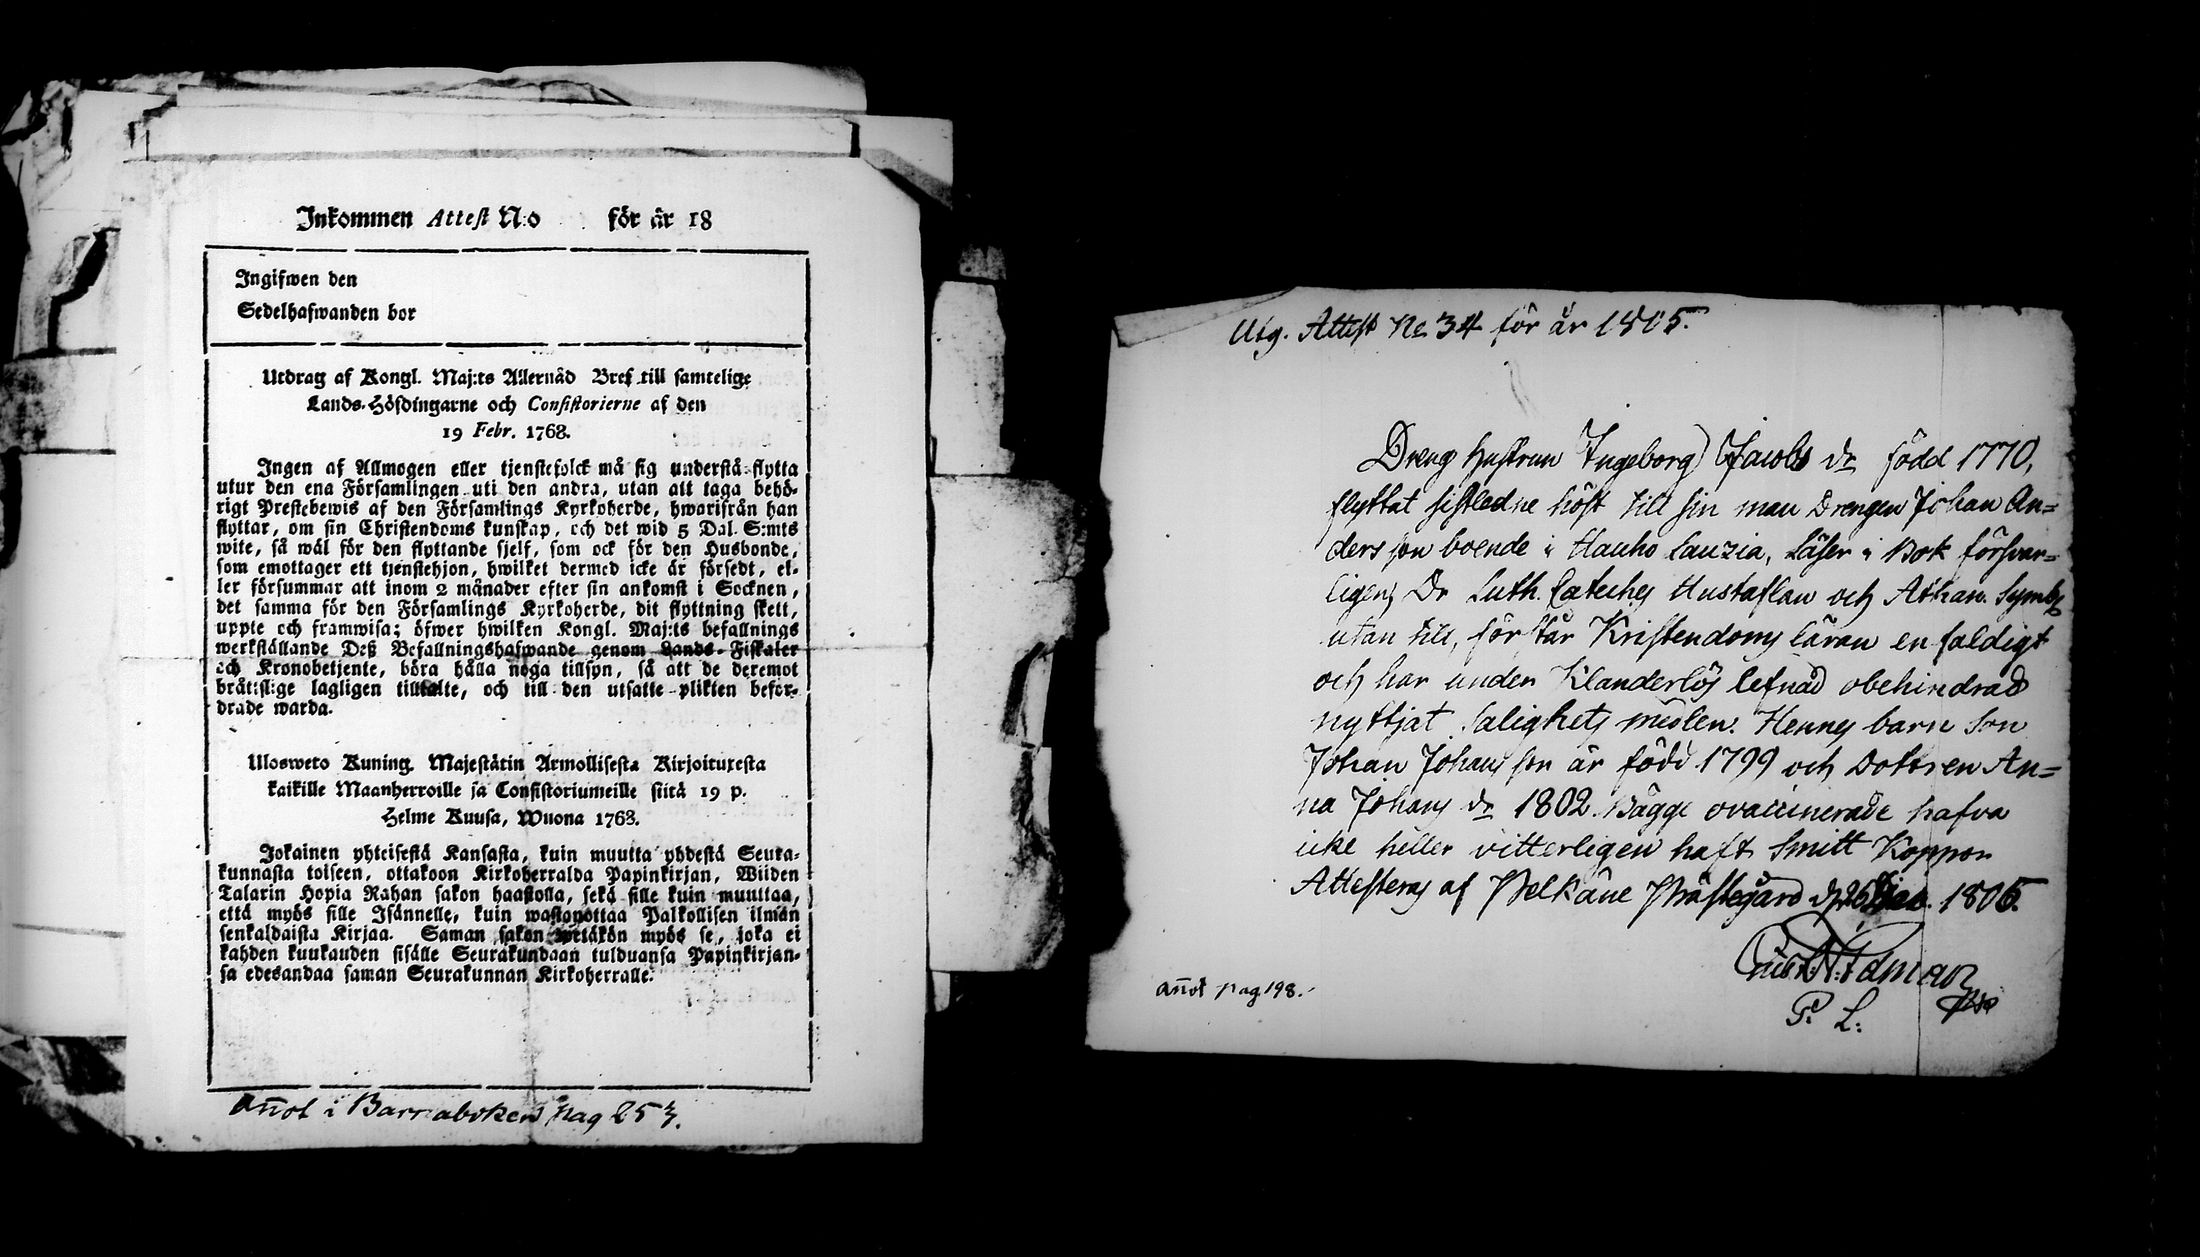 Inkommen Attest N:o för år 18
Ingifwen den
Sedelhafwanden bor
Utdrag af Kongl. Maj:ts Allernåd Bref till samtelige
Lands-Höfdingarne och Consistorierne af den
19 Febr. 1768.
Ingen af Allmogen eller tjenstefolck må sig understå flytta
utur den ena Församlingen uti den andra, utan att taga behö-
rigt Prestebewis af den Församlings Kyrkoherde, hwarifrån han
flyttar, om sin Christendoms kunskap, och det wid 5 Dal. S:mts
wite, så wäl för den flyttande sjelf, som ock för den Husbonde,
som emottager ett tjenstehjon, hwilket dermed icke är försedt, el-
ler försummar att inom 2 månader efter sin ankomst i Socknen,
det samma för den Församlings Kyrkoherde, dit flyttning skett,
uppte och framwisa; öfwer hwilken Kongl. Maj:ts befallnings
werkställande Deß Befallningshafwande genom Lands-Fiskaler
och Kronobetjente, böra hålla noga tillsyn, så att de deremot
bråtslige lagligen tilltalte, och till den utsatte plikten befor-
drade warda.
Ulosweto Kuning. Majestätin Armollisesta Kirjoituxesta
kaikille Maanherroille ja Consistoriumeille siitä 19 p.
Helme Kuusa, Wuona 1768.
Jokainen yhteisestä Kansasta, kuin muutta yhdestä Seura-
kunnasta toiseen, ottakoon Kirkoherralda Papinkirjan, Wiiden
Talarin Hopia Rahan sakon haastolla, sekä sille kuin muuttaa,
että myös sille Isännelle, kuin wastanottaa Palkollisen ilman
senkaldaista Kirjaa. Saman sakon wetäkön myös se, joka ei
kahden kuukauden sisälle Seurakundaan tulduansa Papinkirjan-
sa edesandaa saman Seurakunnan Kirkoherralle.
añot i Barnaboken pag 253.
Utg. Attest No 34 för år 1805.
Dreng hustrun Ingeborg Jacobs dr född 1770,
flyttat sistledne höst till sin man Drengen Johan An=
ders son boende i Hauho Lauzia, Läser i Bok försvar=
ligen, Dr Luth. Cateches Hustaflan och Athan. Symb.
utan till, förstår Kristendoms läran enfaldigt
och har under Klanderlös lefnad obehindrad
nyttjat Salighets medlen. Hennes barn Son
Johan Johans son är född 1799 och Dottren An=
na Johans dr 1802. Bägge ovaccinerade hafva
icke heller vitterligen haft Smitt Koppor
Attesteras af Pelkäne Prästegård d. 26 Dec. 1805.
P. L:
añot pag 198.